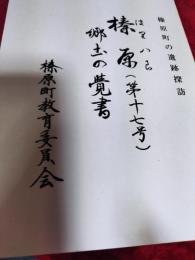 榛原町の遺跡探訪
はいばら
榛原(第十七号)
郷土の覺書
榛原町教育委員会